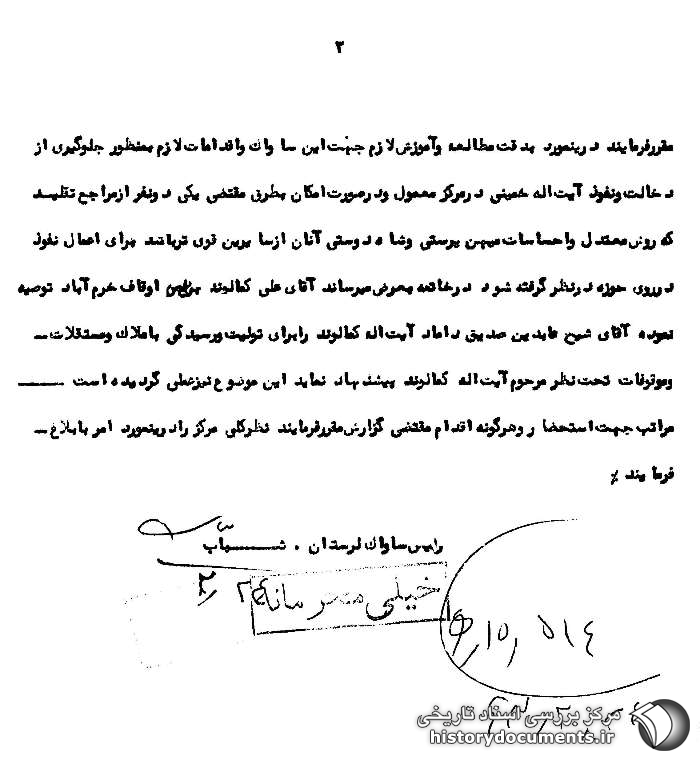 ۲
مقررفرمایند درینمورد بدقت مطالعه وآموزش لازم جهت این ساواک واقدامات لازم بمنظور جلوگیری از
دخالت ونفوذ آیت اله خمینی درمرکز معمول ودرصورت امکان بطرق مقتضی یکی دونفر ازمراجع تقلید
که روش معتدل واحساسات میهن پرستی وشاه دوستی آنان ازسایرین قوی ترباشد برای اعمال نفوذ
درروی حوزه درنظر گرفته شود درخاتمه بعرض میرساند آقای علی کمالوند اوقاف خرم آباد توصیه
نموده آقای شیخ عابدین صدیق داماد آیت اله کمالوند رابرای تولیت ورسیدگی باملاک ومستقلات ــ
وموقوفات تحت نظر مرحوم آیت اله کمالوند پیشنهاد نماید این موضوع نیزعملی گردیده است ــــــ
مراتب جهت استحضار وهرگونه اقدام مقتضی گزارش مقررفرمایند نظرکلی مرکز رادرینمورد امر بابلاغ ــ
فرمایند ٪
رئیس ساواک لرستان . شـــهاب
خیلی محرمانه
۲۴
۲
۱۵, ۵۱۴
مرکز بررسی اسناد تاریخی
historydocuments.ir